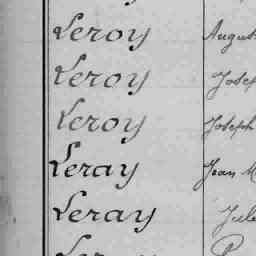 Leroy August
Leroy Josep
Leroy Joseph
Leray Jean M
Leray Jule